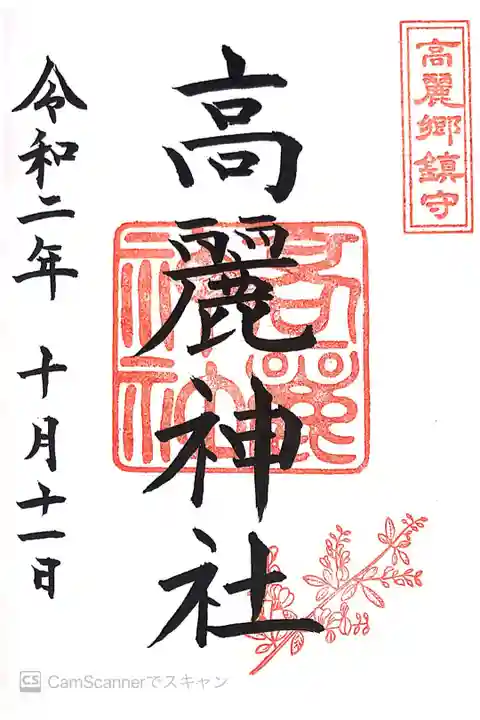 高麗郷鎮守
高麗神社
令和二年 十月十一日
高麗
神社
CS CamScannerでスキャン